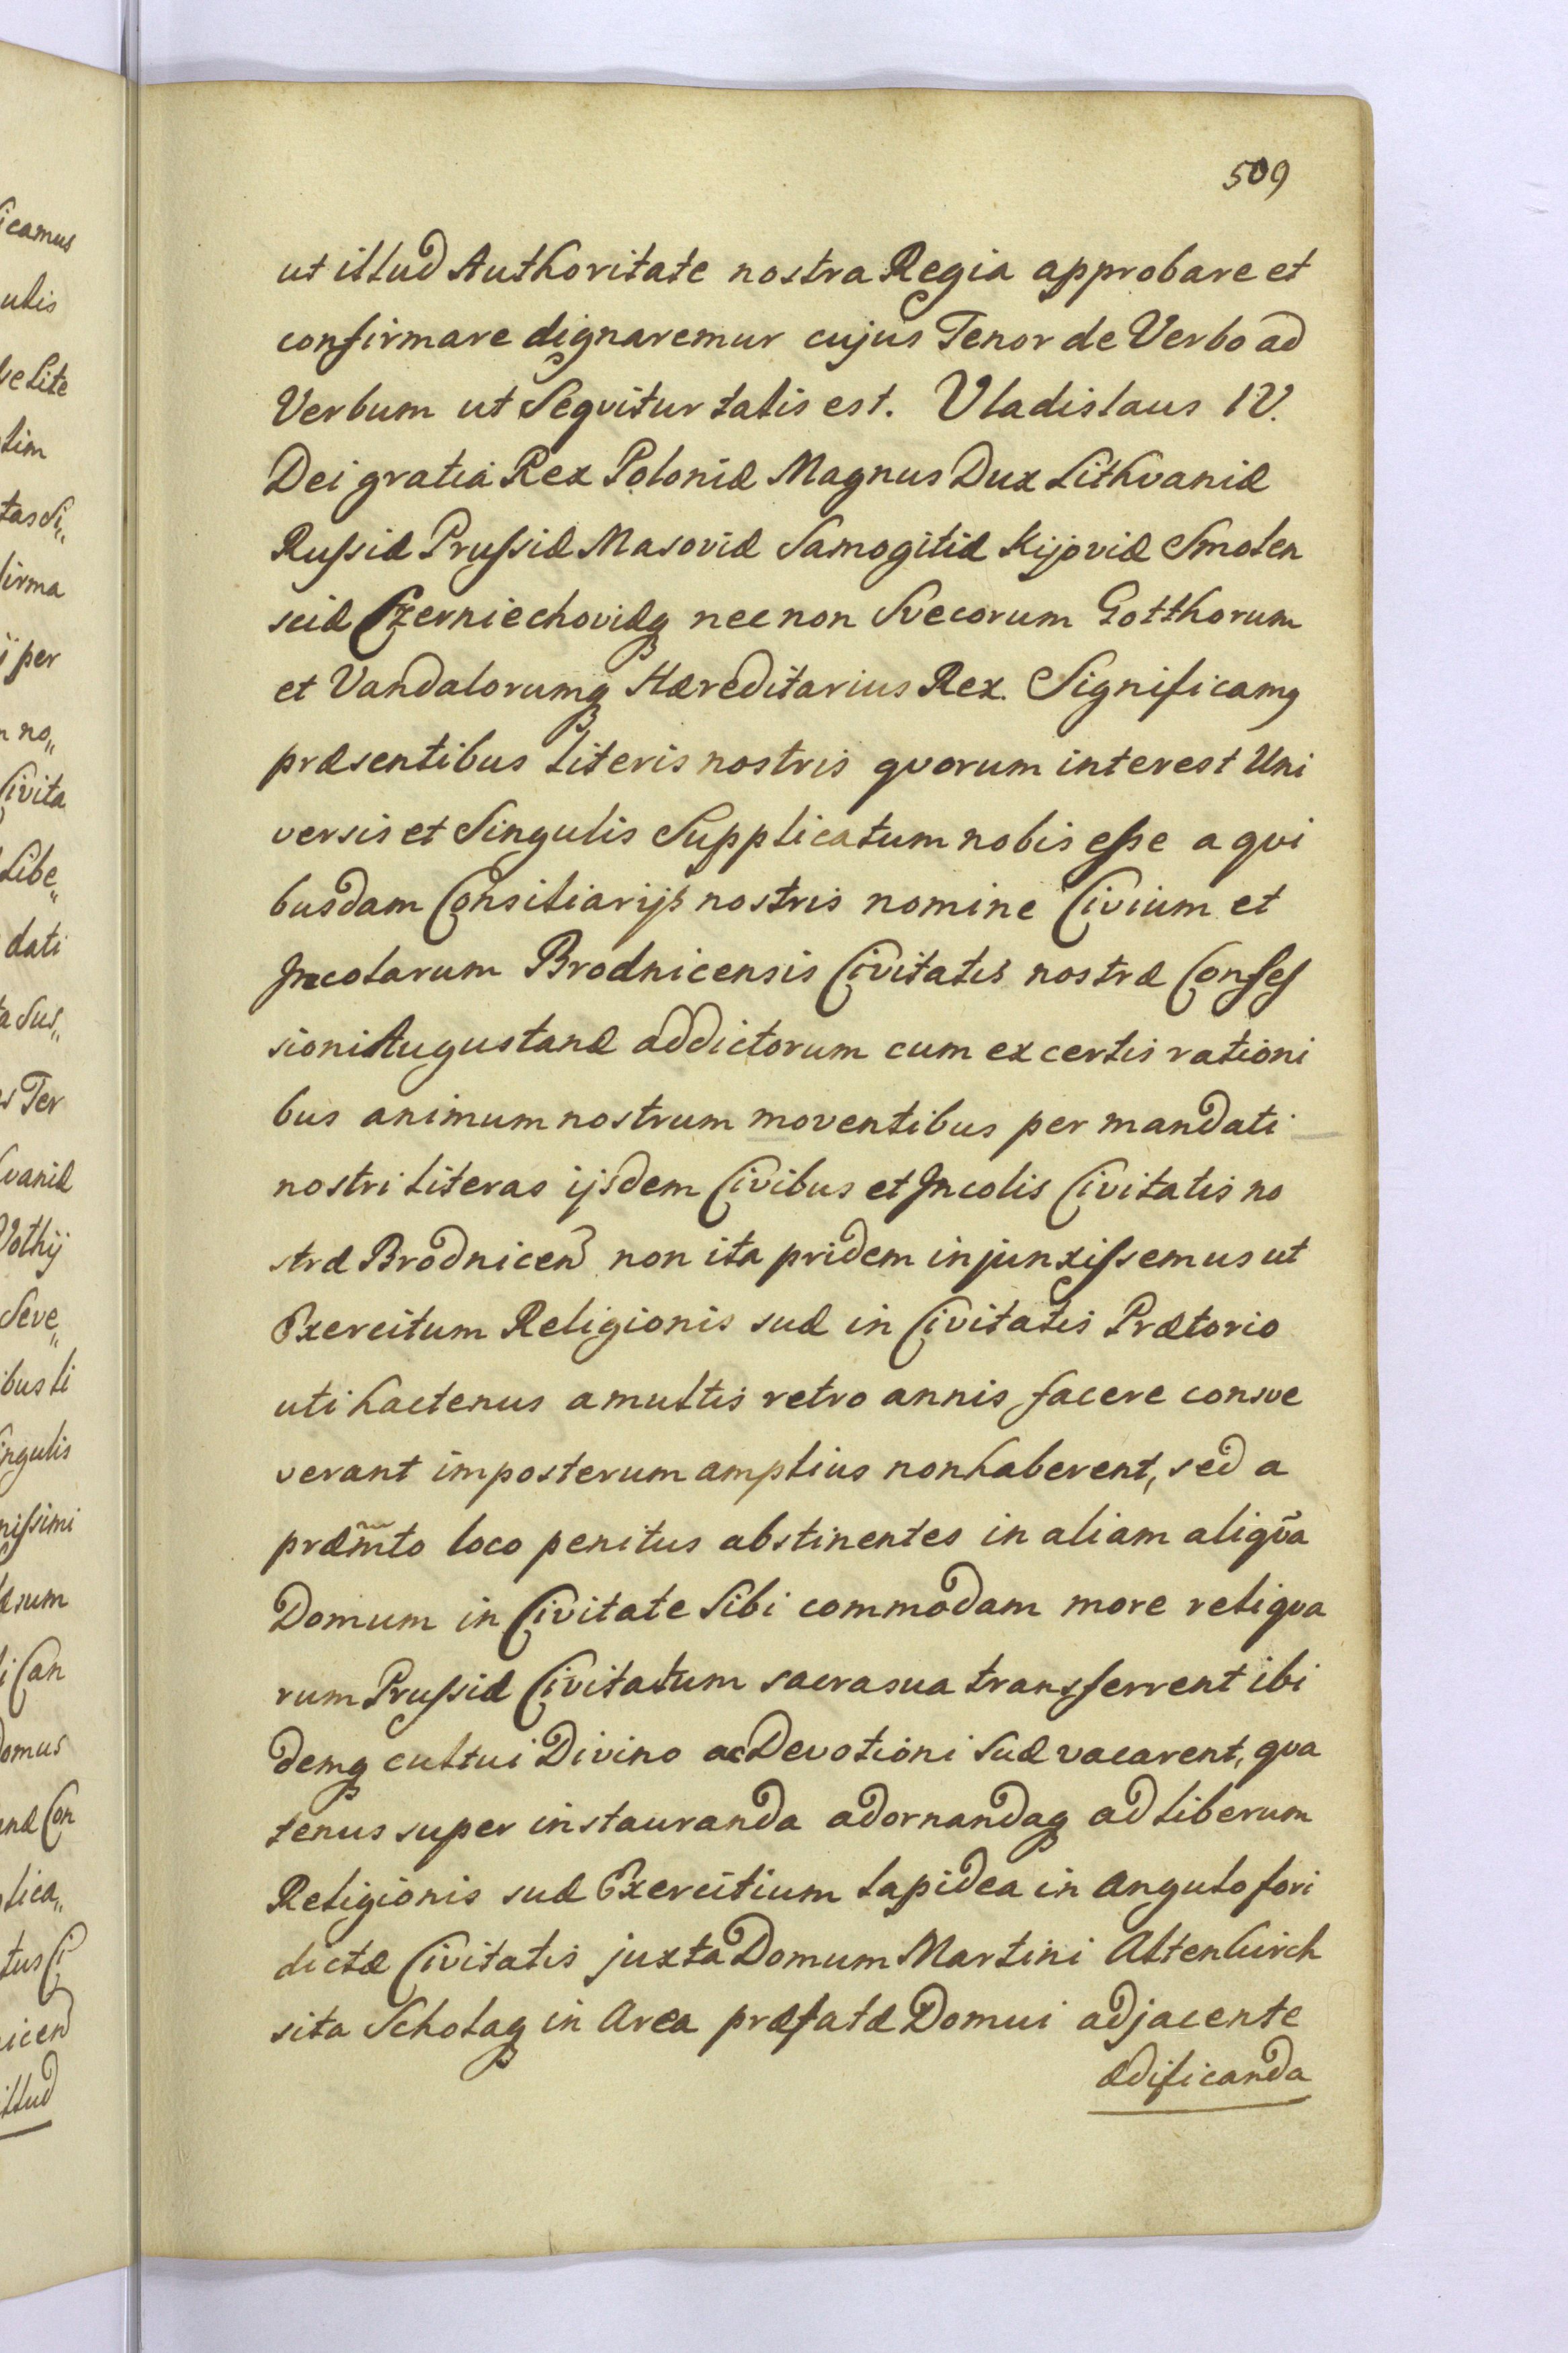 509
ut illud Authoritate nostra Regia approbare et
confirmare dignaremur cujus Tenor de Verbo ad
Verbum ut Seqvitur talis est. Vladislaus IV.
Dei gratia Rex Poloniæ Magnus Dux Lithvaniæ
Russiæ Prussiæ Masoviæ Samogitiæ Kijoviæ Smolen
sciæ Czerniechoviæq nec non Svecorum Gotthorum
et Vandalorumq Hæreditarius Rex. Significamq
præsentibus literis nostris qvorum interest Uni
versis et Singulis Supplicatum nobis esse a qvi
busdam Consiliarijs nostris nomine Civium et
Incolarum Brodnicensis Civitatis nostræ Confes
sioni Augustanæ addictorum cum ex certis rationi
bus animum nostrum moventibus per mandati
nostri literas ijsdem Civibus et Incolis Civitatis no
stræ Brodnicen non ita pridem injunxissemus ut
Exercitum Religionis suæ in Civitatis Prætorio
uti hactenus a multis retro annis facere consve
verant imposterum amplius non haberent, sed a
præm̃to loco penitus abstinentes in aliam aliqṽa
Domum in Civitate Sibi commodam more reliqva
rum Prussiæ Civitatum sacra sua transferrent ibi
demq cultui Divino ac Devotioni Suæ vacarent, qva
tenus super instauranda adornandaq ad liberum
Religionis suæ Exercitium lapidea in angulo fori
dictæ Civitatis juxta Domum Martini Altenkirch
sita Scholaq in Area præfatæ Domui adjacente
ædificanda
icamus
ulis
ve Lite
lim
tas Ci„
firma
ij per
m no„
Civita
Libe„
dati
ta Sus„
s Ter
vaniæ
Seve„
ibus li
ingulis
nissimi
ærum
i Can
Domus
anæ Con
lica„
tus Ci
nicen
illud